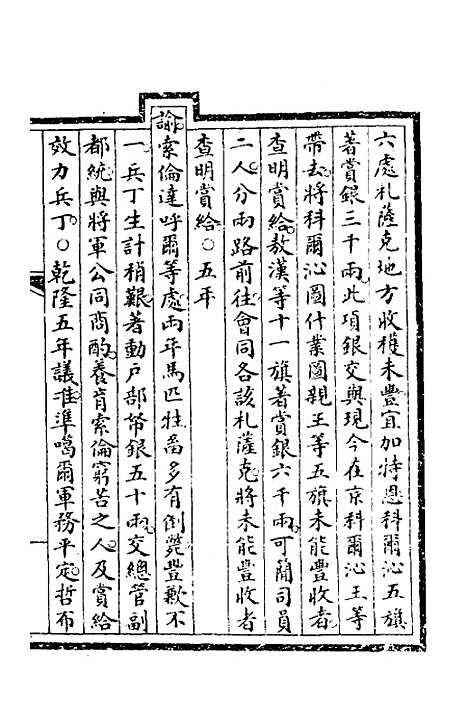 六處札薩克地方收穫未豐宜加特恩科爾沁五旗
著賞銀三千兩此項銀交與現今在京科爾沁王等
帶去將科爾沁圖什業圖親王等五旗未能豐收者
查明賞給敖漢等十一旗著賞銀六千兩可蘭司員
二人分兩路前往會同各該札薩克將未能豐收者
查明賞給〇五年
諭索倫達呼爾等處兩年馬匹牲畜多有倒斃豐歉不
一兵丁生計稍艱著動戶部帑銀五十兩交總管副
都統與將軍公同商酌養育索倫窮苦之人及賞給
效力兵丁〇乾隆五年議准準噶爾軍務平定哲布